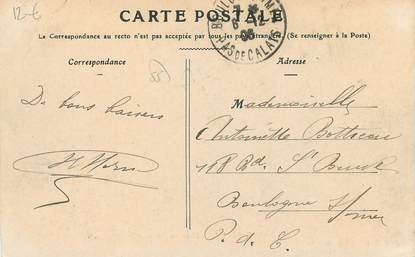 12-€
CARTE POSTALE
La Correspondance au recto n'est pas acceptée par tous les pays étrangers. (Se renseigner à la Poste)
PAS DE CALAIS
Correspondance
Adresse
De bons baisers
Mademoiselle
Antoinette
Boulogne s/mer
P. d. C.